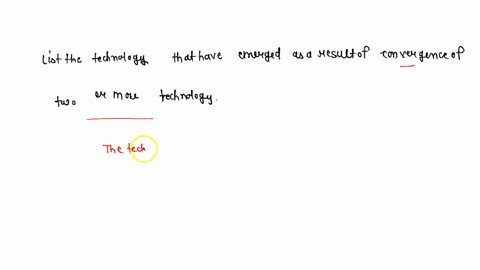 List the technology that have emerged as a result of convergence of
two or more technology.
The tech